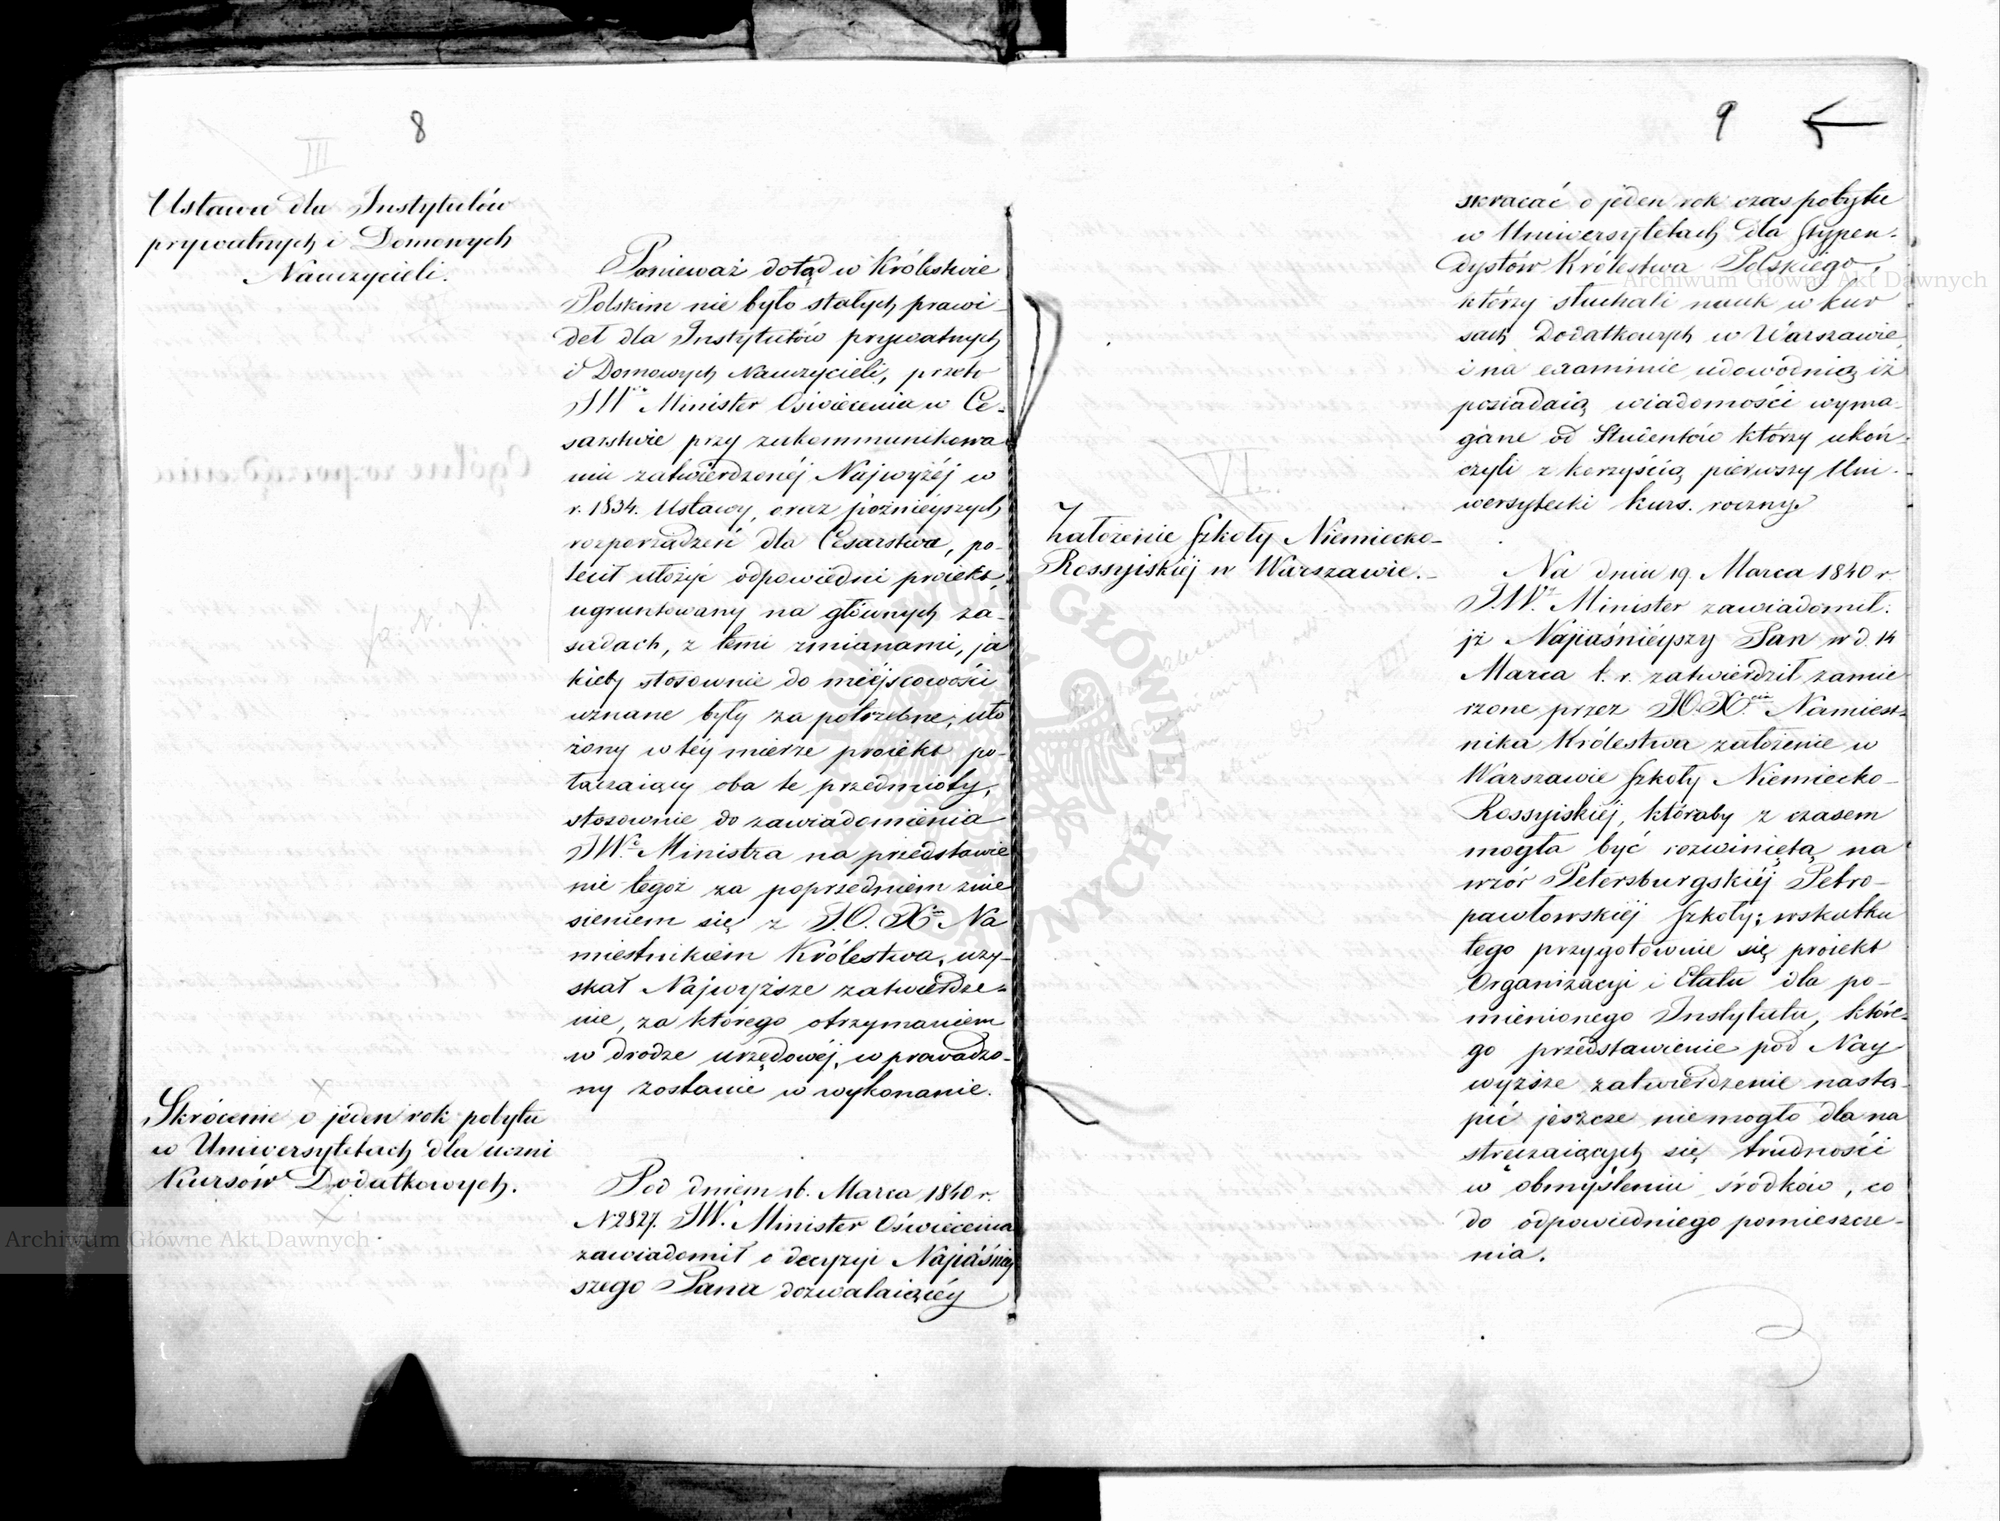 8
III
Ustawa dla Instytutów
prywatnych i Domowych
Nauczycieli.
Ponieważ dotąd w Królestwie
Polskim nie było stałych prawi-
deł dla Instytutów prywatnych
i Domowych Nauczycieli, przeto
JW. Minister Oświecenia w Ce-
sarstwie przy zakommunikowa
niu zatwierdzonéj Najwyżéj w
r. 1834. Ustawy, oraz późniéyszych
rozporządzeń dla Cesarstwa, po-
lecił ułożyć odpowiedni proiekt,
ugruntowany na głównych za-
sadach, z temi zmianami, ja
kieby stosownie do miéjscowości
uznane były za potrzebne; uło
żony w téy mierze proiekt po-
łączaiący oba te przedmioty,
stosownie do zawiadomienia
JW. Ministra na przedstawie
nie tegoż za poprzedniem znie
sieniem się z J.O. X. Na
miestnikiem Królestwa, uzy-
skał Najwyższe zatwierdze-
nie, za którego otrzymaniem
w drodze urzędowéj, wprowadzo-
ny zostanie w wykonanie.
Skrócenie o jeden rok pobytu
w Uniwersytetach dla uczni
Kursów Dodatkowych.
Pod dniem 16. Marca 1840 r.
N 2827. JW. Minister Oświecenia
zawiadomił o decyzyi Najjaśniéj
szego Pana dozwalaiącéy
9
skracać o jeden rok czas pobytu
w Uniwersytetach dla Stypen-
dystów Królestwa Polskiego,
którzy słuchali nauk w kur
sach Dodatkowych w Warszawie
i na examinie udowodnią iż
posiadaią wiadomości wyma-
gane od Studentów którzy ukoń-
czyli z korzyścią pierwszy Uni-
wersytecki kurs roczny.
VI.
Założenie Szkoły Niemiecko-
Rossyjskiéj w Warszawie.
Na dniu 19. Marca 1840 r.
J.W. Minister zawiadomił:
iż Najjaśniéyszy Pan w d. 14
Marca t. r. zatwierdził zamie
rzone przez J.O. X. Namiest-
nika Królestwa założenie w
Warszawie Szkoły Niemiecko-
Rossyjskiéj, któraby z czasem
mogła być rozwiniętą na
wzór Petersburgskiéj Petro-
pawłowskiéj Szkoły; wskutku
tego przygotownie się proiekt
Organizacyi i Etatu dla po-
mienionego Instytutu, które-
go przedstawienie pod Nay
wyższe zatwierdzenie nastą-
pić jeszcze nie mogło dla na
stręczaiących się trudności
w obmyśleniu środków, co
do odpowiedniego pomieszcze-
nia.
Archiwum Główne Akt Dawnych
Archiwum Główne Akt Dawnych